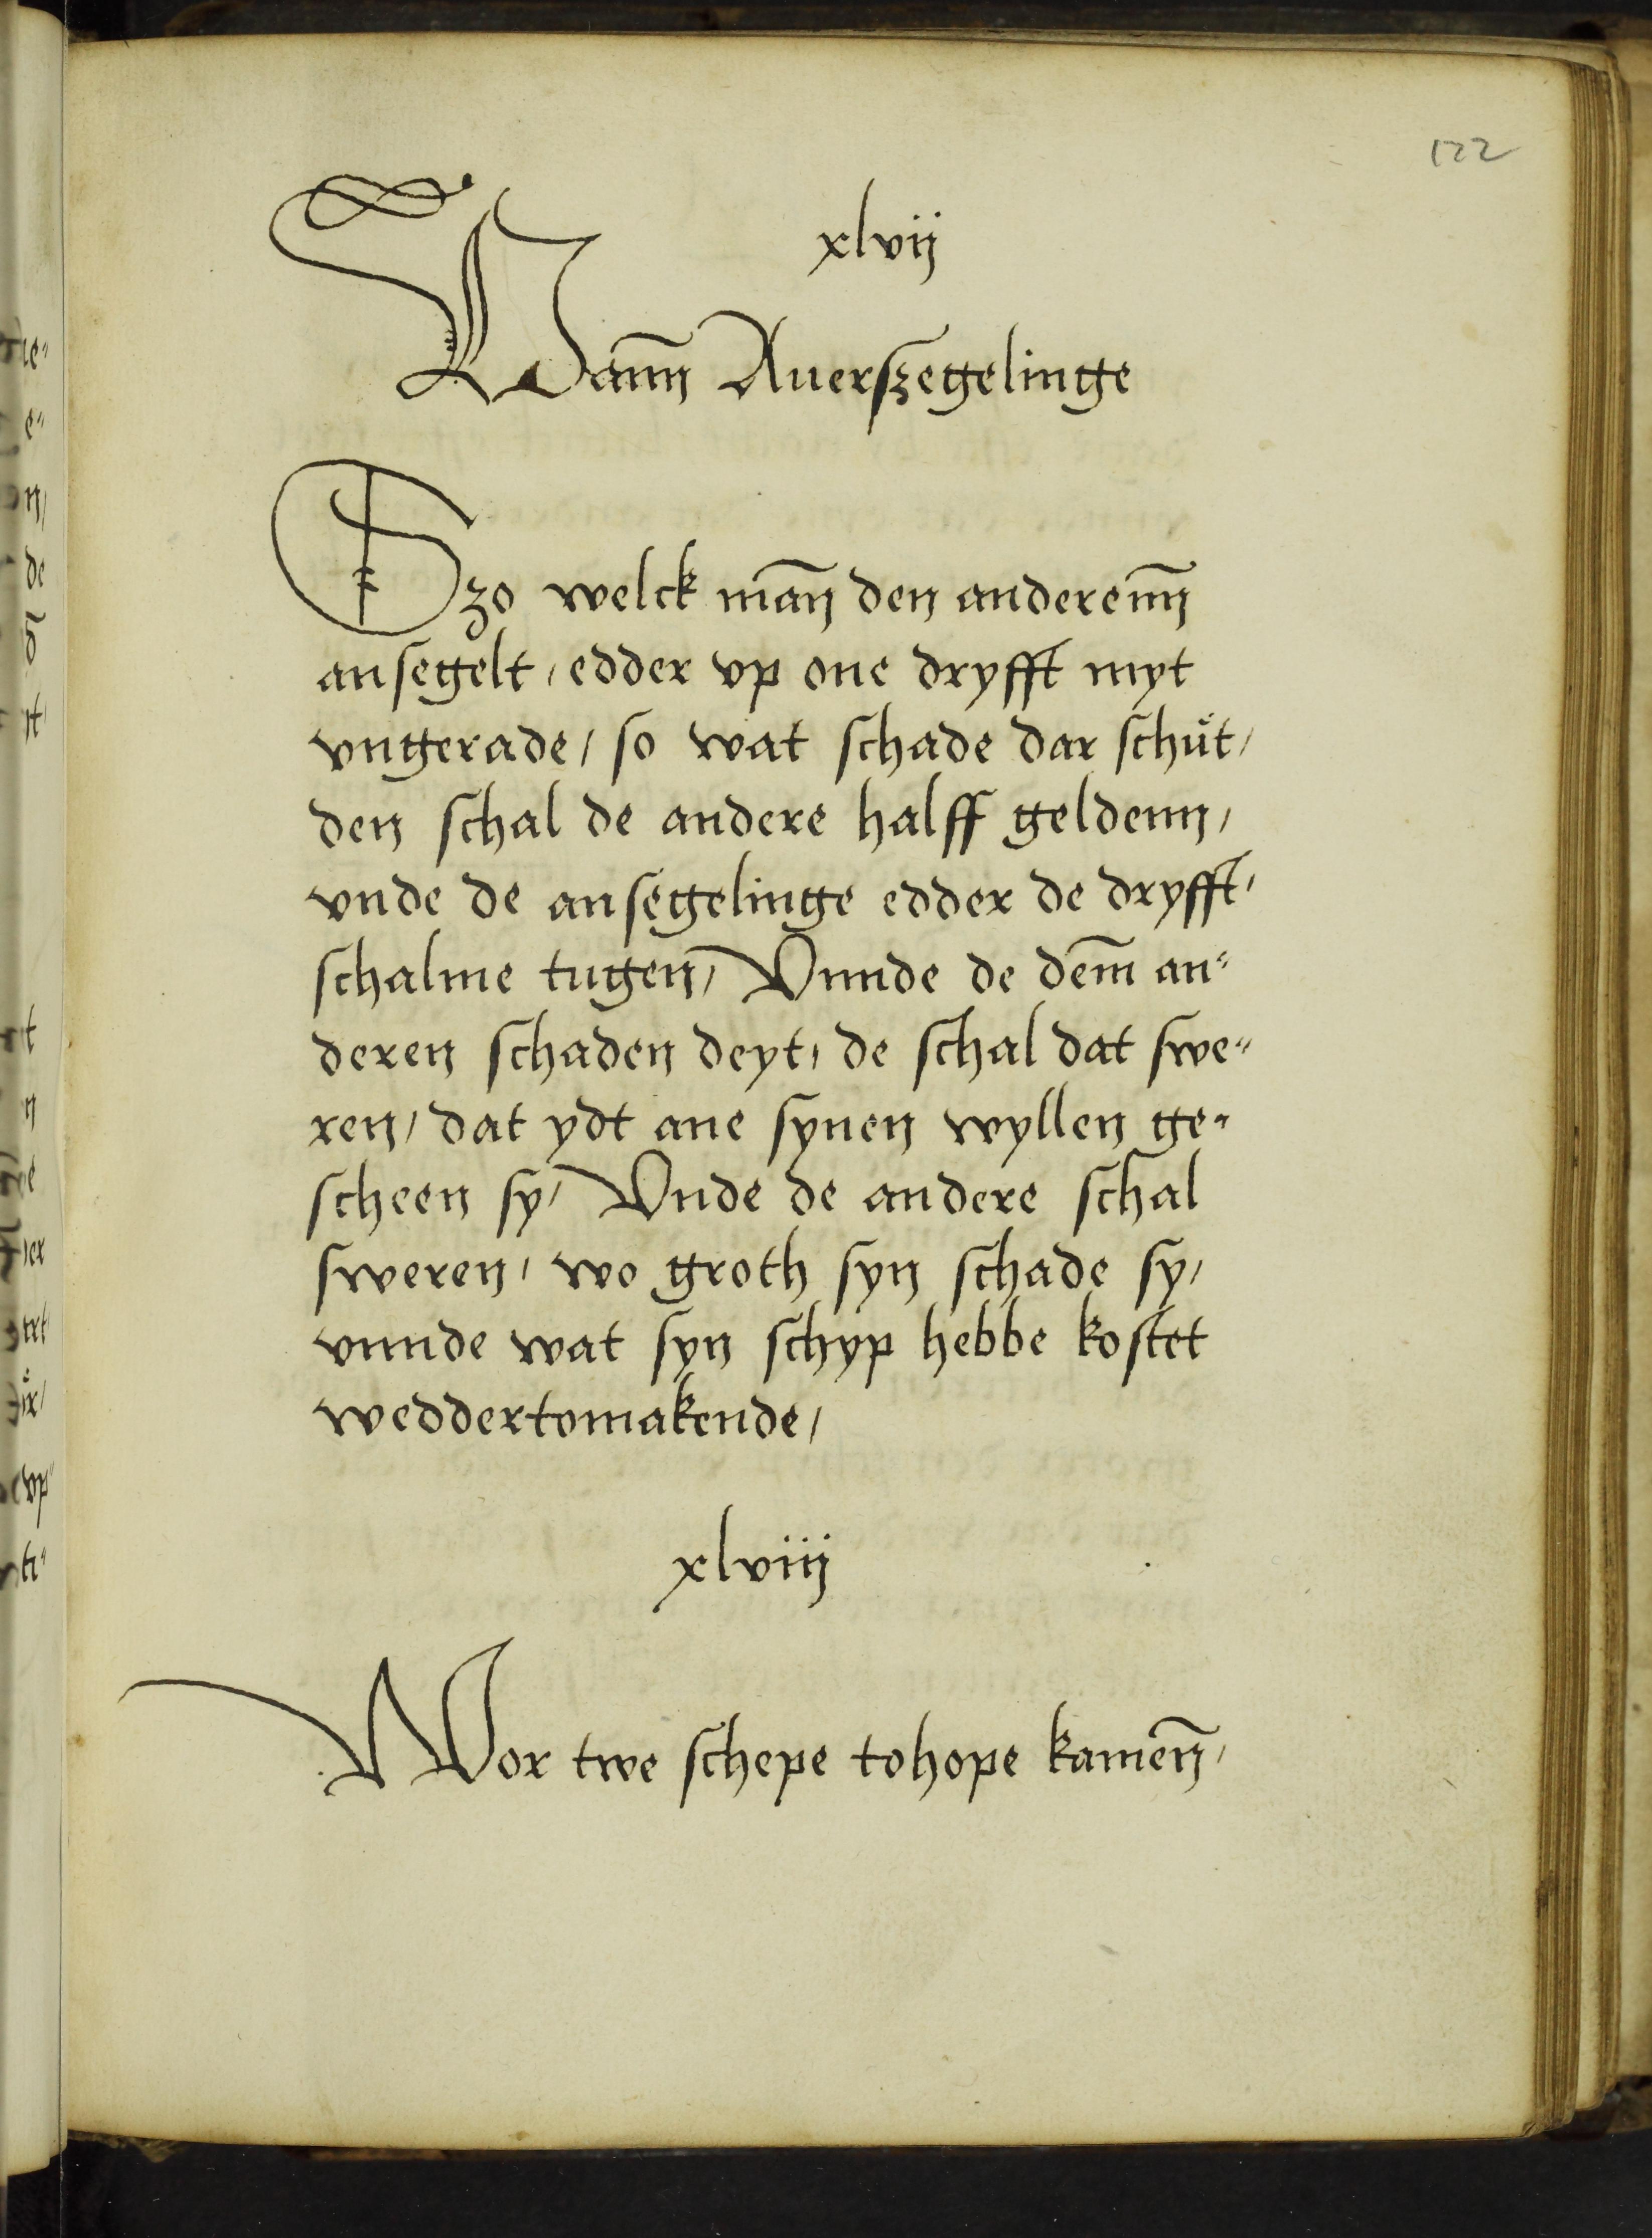 122
xlvij
Vann Auerszegelinge
Szo welck man̄ den anderenn̄
ansegelt, edder vp one dryfft myt
vngerade, so wat schade dar schůt,
den schal de andere halff geldenn,
vnde de ansegelinge edder de dryfft,
schalme tugen, Vnnde de dem̄ an⸗
deren schaden deyt, de schal dat swe⸗
ren, dat ydt ane synen wyllen ge⸗
scheen sy, Vnde de andere schal
sweren, wo groth syn schade sy,
vnnde wat syn schyp hebbe kostet
weddertomakende,
xlviij
Wor twe schepe tohope kamen̄,